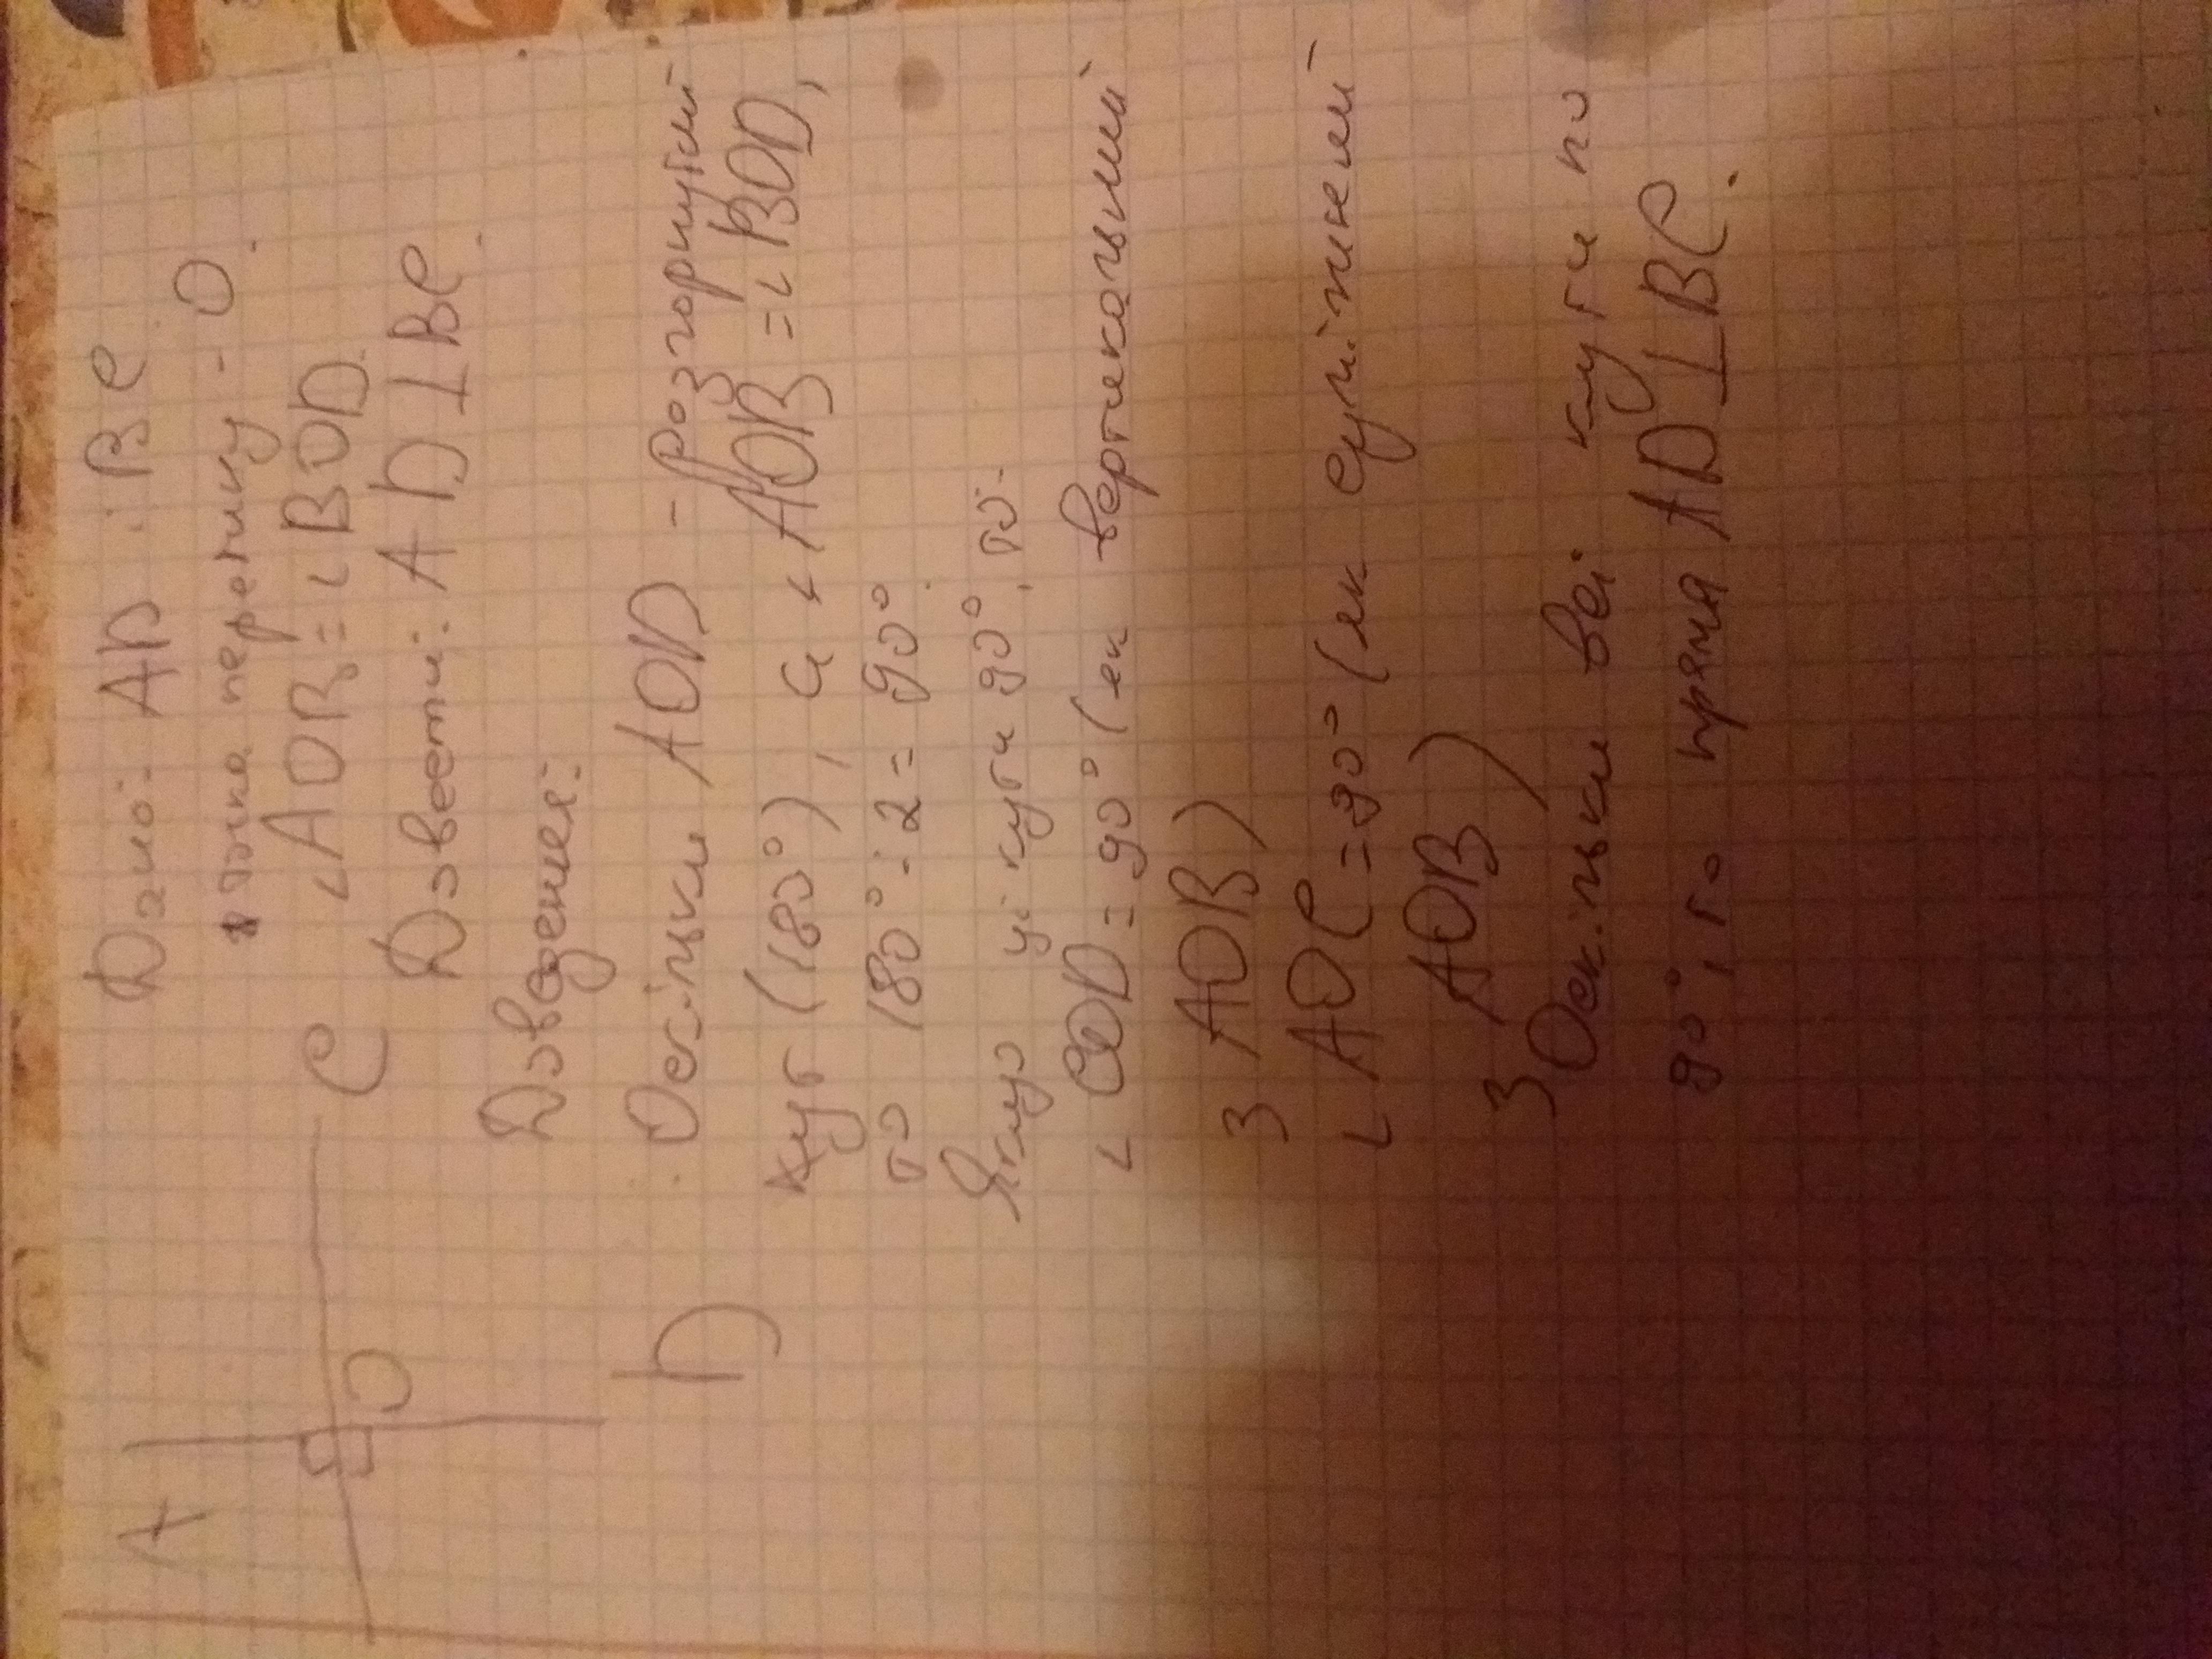 A
C
O
D
Дано: AD і BC
точка перетину - O.
∟AOB = ∟BOD.
Довести: AD ⊥ BC.
Доведення:
Оскільки AOD - розгорнутий
кут (180°), а ∟AOB = ∟BOD,
то 180° : 2 = 90°.
Якщо ці кути 90°, то:
∟COD = 90° (як вертикальний
з AOB)
∟AOC = 90° (як суміжний
з AOB)
Оскільки всі кути по
90°, то пряма AD ⊥ BC.